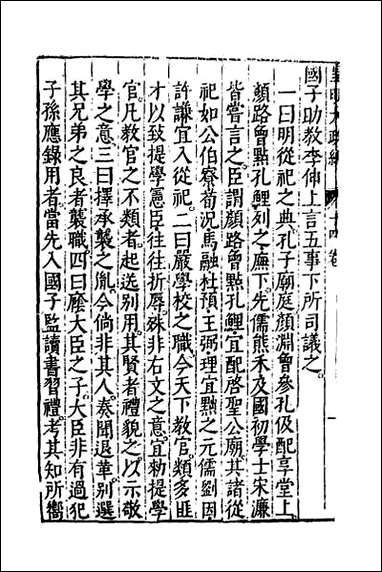 皇明大政纂 卷十四
國子助教李伸上言五事下所司議之
一曰明從祀之典孔子廟庭顏淵曾參孔伋配享堂上
顏路曾點孔鯉列之廡下先儒熊禾及國初學士宋濂
皆嘗言之臣謂顏路曾點孔鯉宜配啓聖公廟其諸從
祀如公伯寮荀況馬融杜預王弼理宜黜之元儒劉因
許謙宜入從祀二曰嚴學校之職今天下教官類多匪
才以致提學憲臣往往折辱殊非右文之意宜勑提學
官凡教官之不類者起送別用其賢者禮貌之以示敬
學之意三曰擇承襲之胤今倘非其人奏聞退革別選
其兄弟之良者襲職四曰廕大臣之子大臣非有過犯
子孫應錄用者當先入國子監讀書習禮考其知所嚮